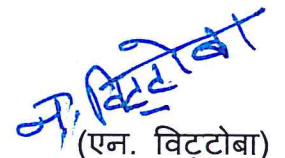 न. विट्टोबा
(एन. विट्टोबा)